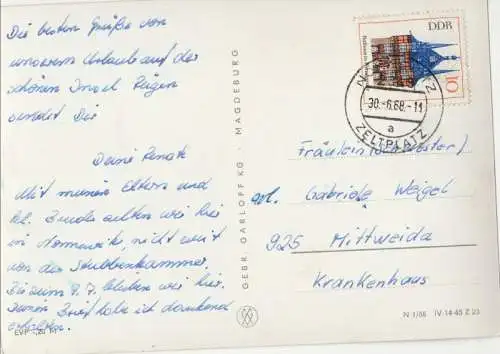 Die besten Grüße von
unserem Urlaub auf der
schönen Insel Rügen
sendet Dir
Deine Renate
Mit meinen Eltern und
kl. Bruder zelten wir hier
in Nonnewitz, nicht weit
von der Stubbenkammer.
Bis zum 7.7. bleiben wir hier.
Deinen Brief habe ich dankend
erhalten.
EVP 0,20 M
GEBR. GARLOFF KG · MAGDEBURG
DDR
10
30.-6.68.-11
a
ZELTPLATZ
Fräulein (Schwester)
Gabriele Weigel
925 Mittweida
Krankenhaus
N 1/68 IV-14-45 Z 23